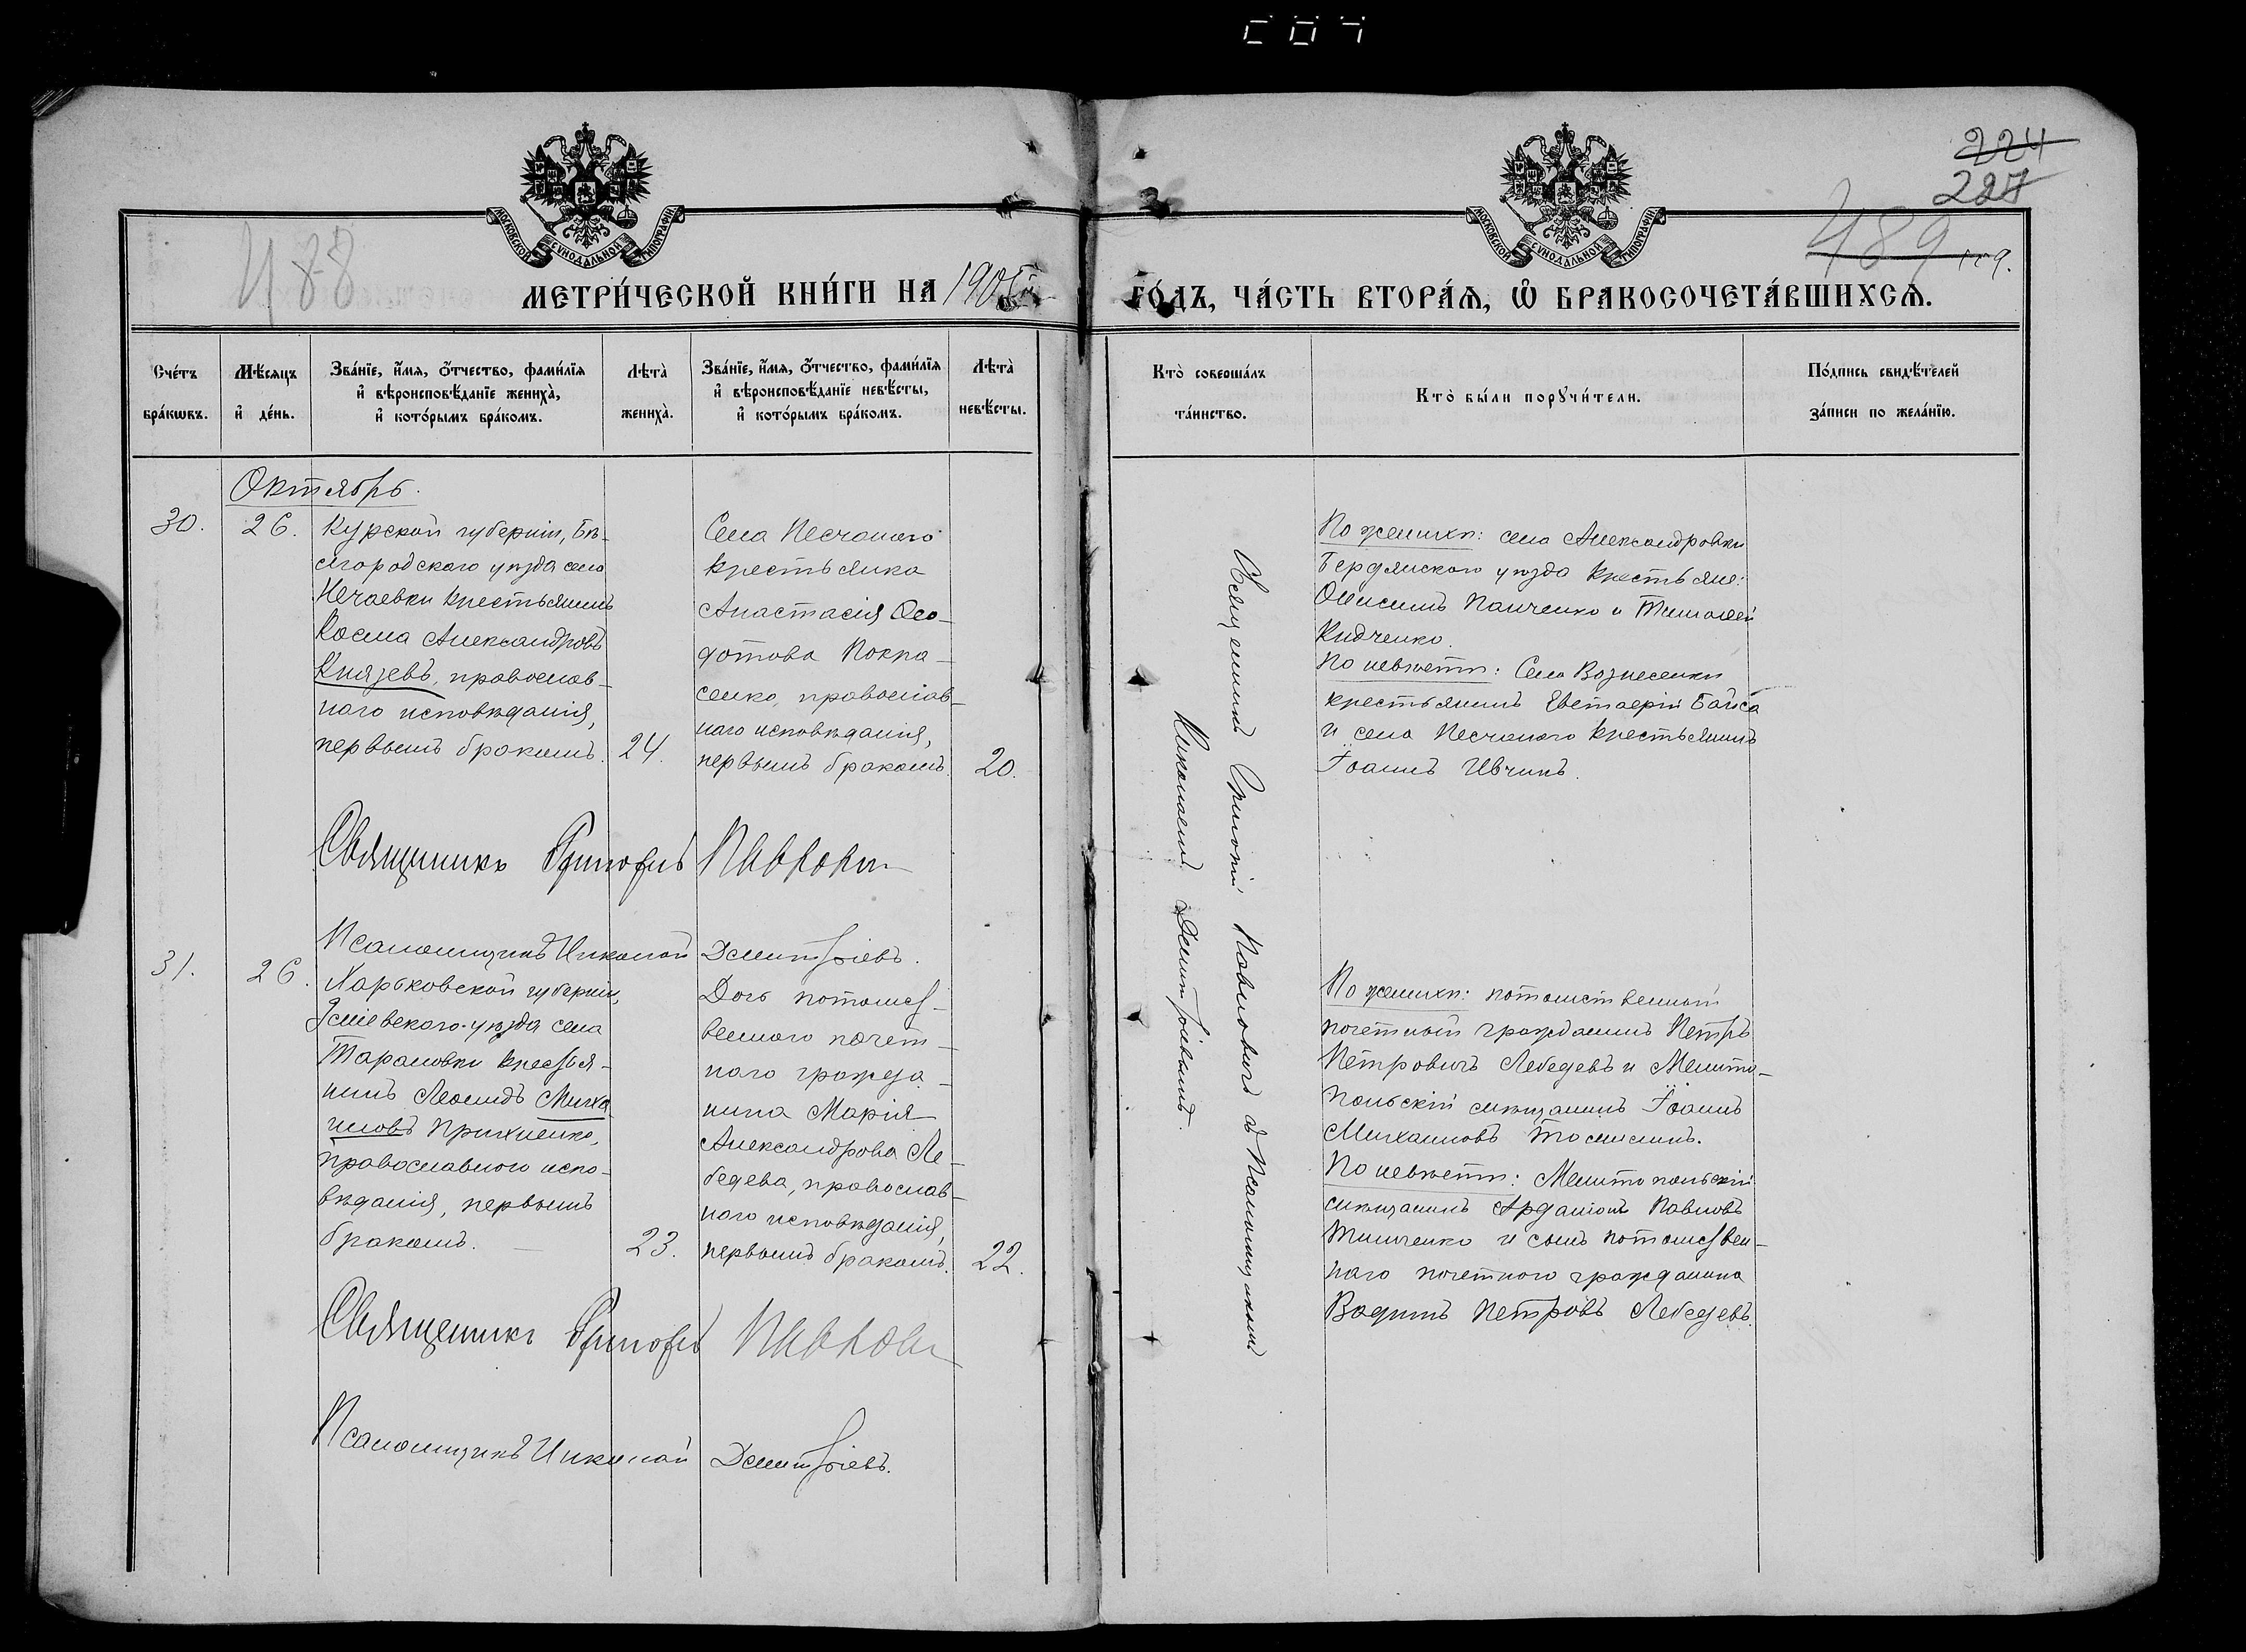 224
227
488
489
МОСКОВСКОЙ СѴНОДАЛЬНОЙ ТИПОГРАФІИ
МОСКОВСКОЙ СѴНОДАЛЬНОЙ ТИПОГРАФІИ
МЕТРИ́ЧЕСКОЙ КНИ́ГИ НА
ГО́ДЪ, ЧА́СТЬ ВТОРА́Ѧ, Ѡ БРАКОСОЧЕТА́ВШИХСѦ.
Сче́тъ бра́кѡвъ.
Мѣ́сѧцъ и҆ де́нь.
Зва́нїе, и҆́мѧ, ѻ҆́тчество, фами́лїѧ и҆ вѣроисповѣ́данїе жениха̀, и҆ кото́рымъ бра́комъ.
Лѣта̀ жениха̀.
Зва́нїе, и҆́мѧ, ѻ҆́тчество, фами́лїѧ и҆ вѣроисповѣ́данїе невѣ́сты, и҆ кото́рымъ бра́комъ.
Лѣта̀ невѣ́сты.
Кто̀ соверша́лъ та́инство.
Кто̀ бы́ли порꙋчи́тели.
По́дпись свидѣ́телей за́писи по жела́нїю.
Октябрь.
30.
26.
Курской губерніи, Бѣ-
лгородскаго уѣзда села
Нечаевки крестьянинъ
Косма Александровъ
Князевъ, православ-
наго исповѣданія,
первымъ бракомъ.
24.
Села Песчанаго
крестьянка
Анастасія Ѳео-
дотова Покра-
сенко, православ-
наго исповѣданія,
первымъ бракомъ.
20.
Священникъ Григорій Павловичъ съ Псаломщикомъ
Николаемъ Дмитріевымъ.
По женихѣ: села Александровки
Бердянскаго уѣзда крестьяне:
Онисимъ Панченко и Тимоѳей
Кидченко.
По невѣстѣ: Села Вознесенки
крестьянинъ Евстаѳій Байса
и села Песчанаго крестьянинъ
Іоаннъ Ивчинъ.
Священникъ Григорій Павлович
Псаломщикъ Николай Дмитріевъ.
31.
26.
Харьковской губерніи,
Зміевскаго уѣзда села
Тарановки крестья-
нинъ Леонидъ Миха
иловъ Прихненко,
православнаго испо-
вѣданія, первымъ
бракомъ.
23.
Дочь потомст-
веннаго почет-
наго гражда-
нина Марія
Александрова Ле-
бедева, православ-
наго исповѣданія,
первымъ бракомъ.
22.
По женихѣ: потомственный
почетный гражданинъ Петръ
Петровичъ Лебедевъ и Мелито-
польскій мѣщанинъ Іоаннъ
Михаиловъ Томилинъ.
По невѣстѣ: Мелитопольскій
мѣщанинъ Ардаліонъ Павловъ
Тимченко и сынъ потомствен-
наго почетнаго гражданина
Вадимъ Петровъ Лебедевъ.
Священникъ Григорій Павлович
Псаломщикъ Николай Дмитріевъ.